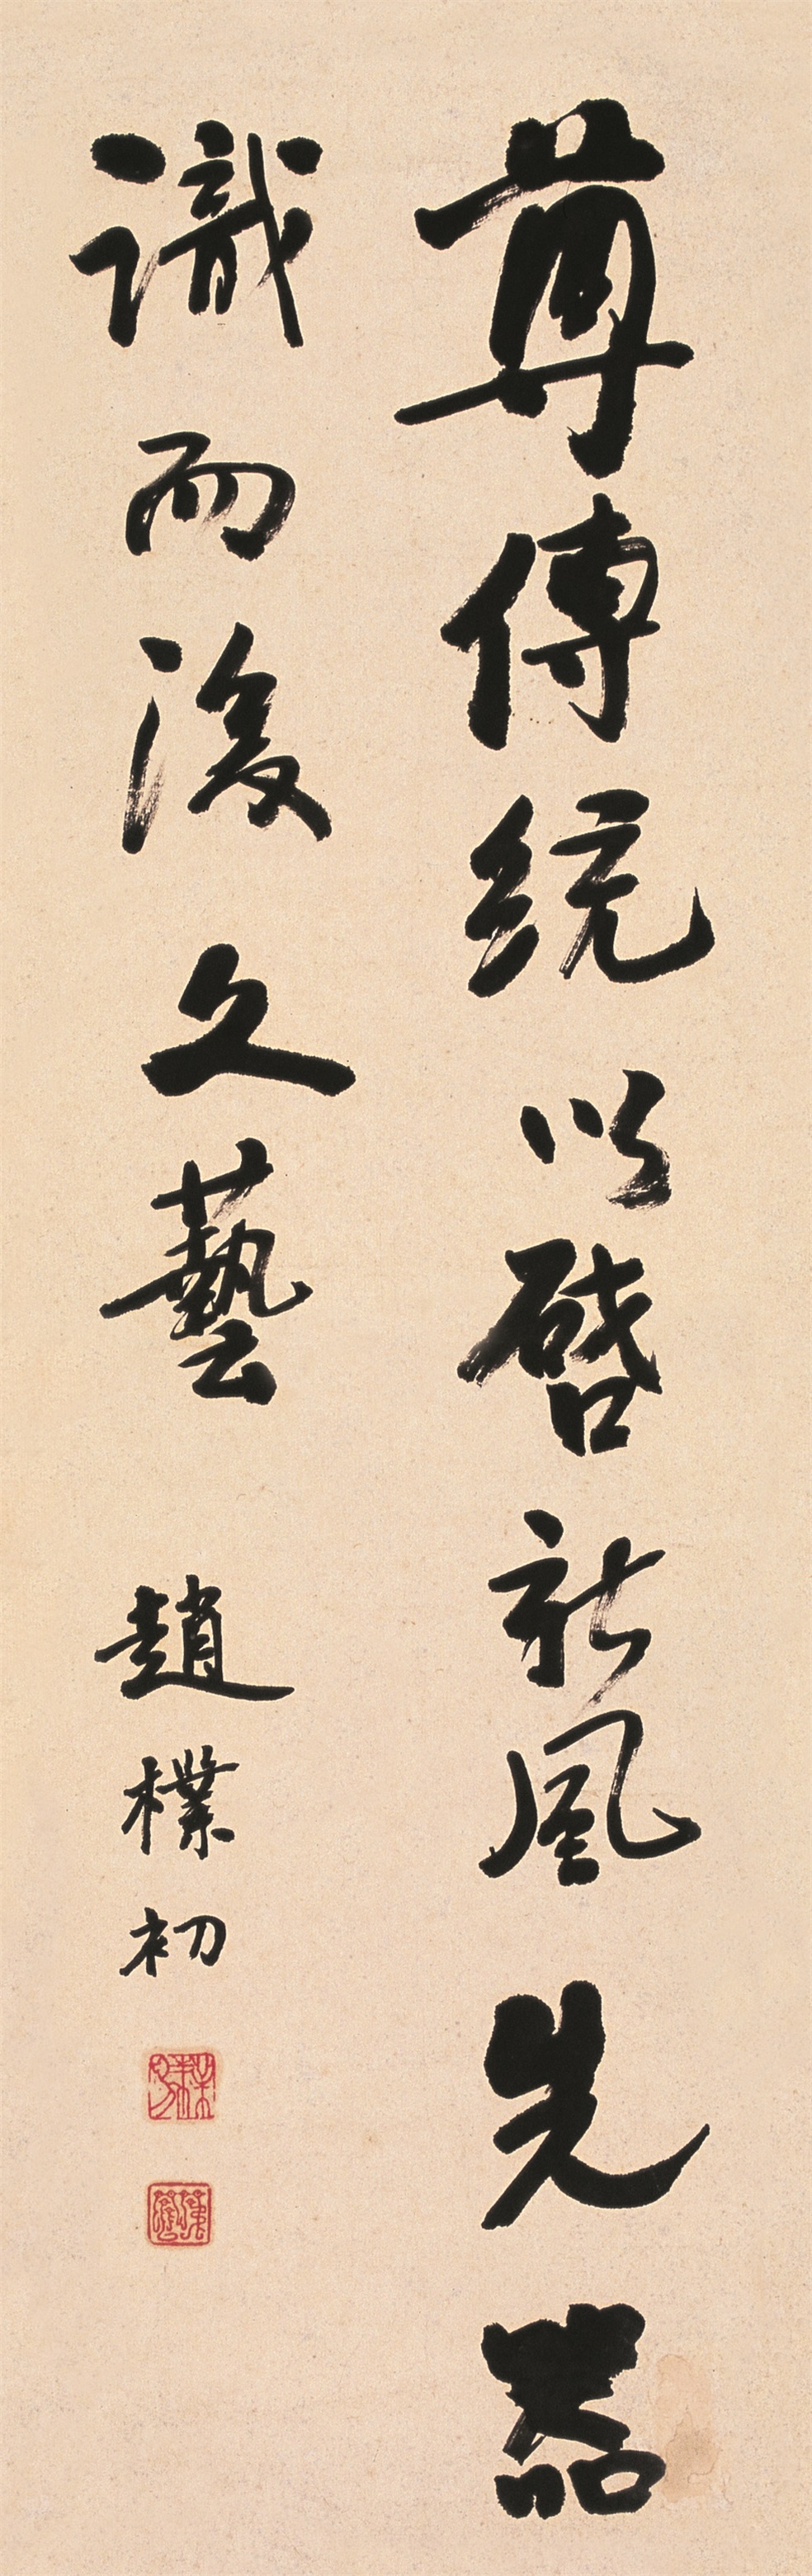 尊傳統以啓新風先器
識而後文藝
趙樸初
樸初